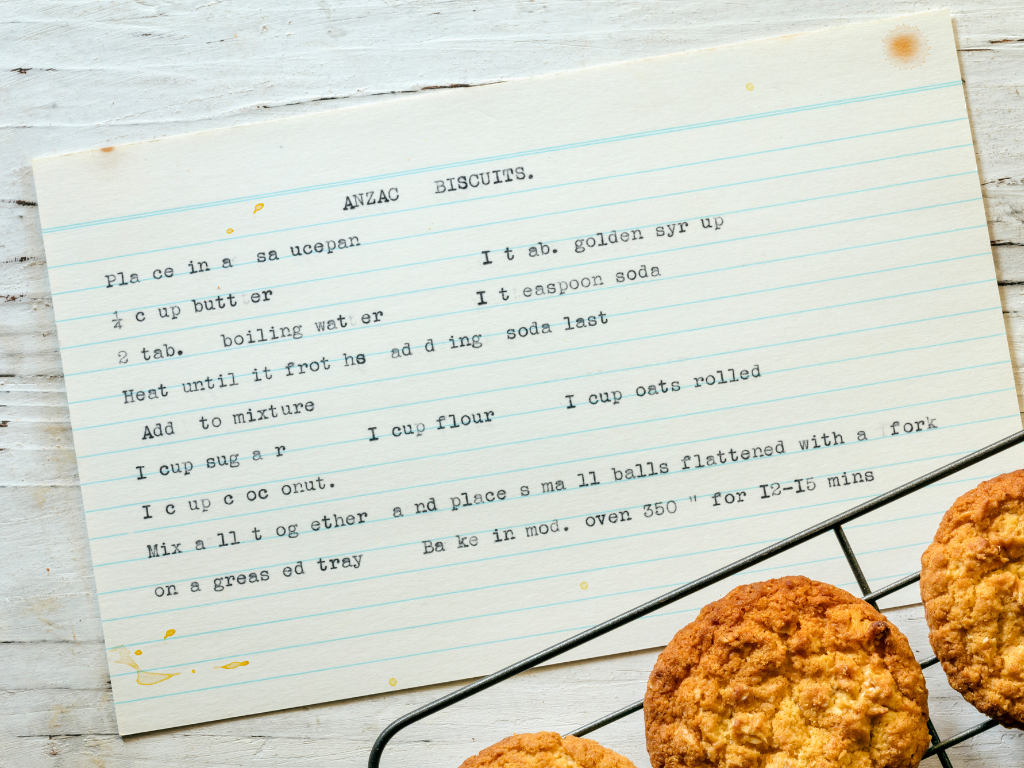 ANZAC BISCUITS.
Pla ce in a sa ucepan
¼ c up butt er I t ab. golden syr up
2 tab. boiling wat er I t easpoon soda
Heat until it frot hs ad d ing soda last
Add to mixture
I cup sug a r I cup flour I cup oats rolled
I c up c oc onut.
Mix a ll t og ether a nd place s ma ll balls flattened with a fork
on a greas ed tray Ba ke in mod. oven 350 " for I2-I5 mins